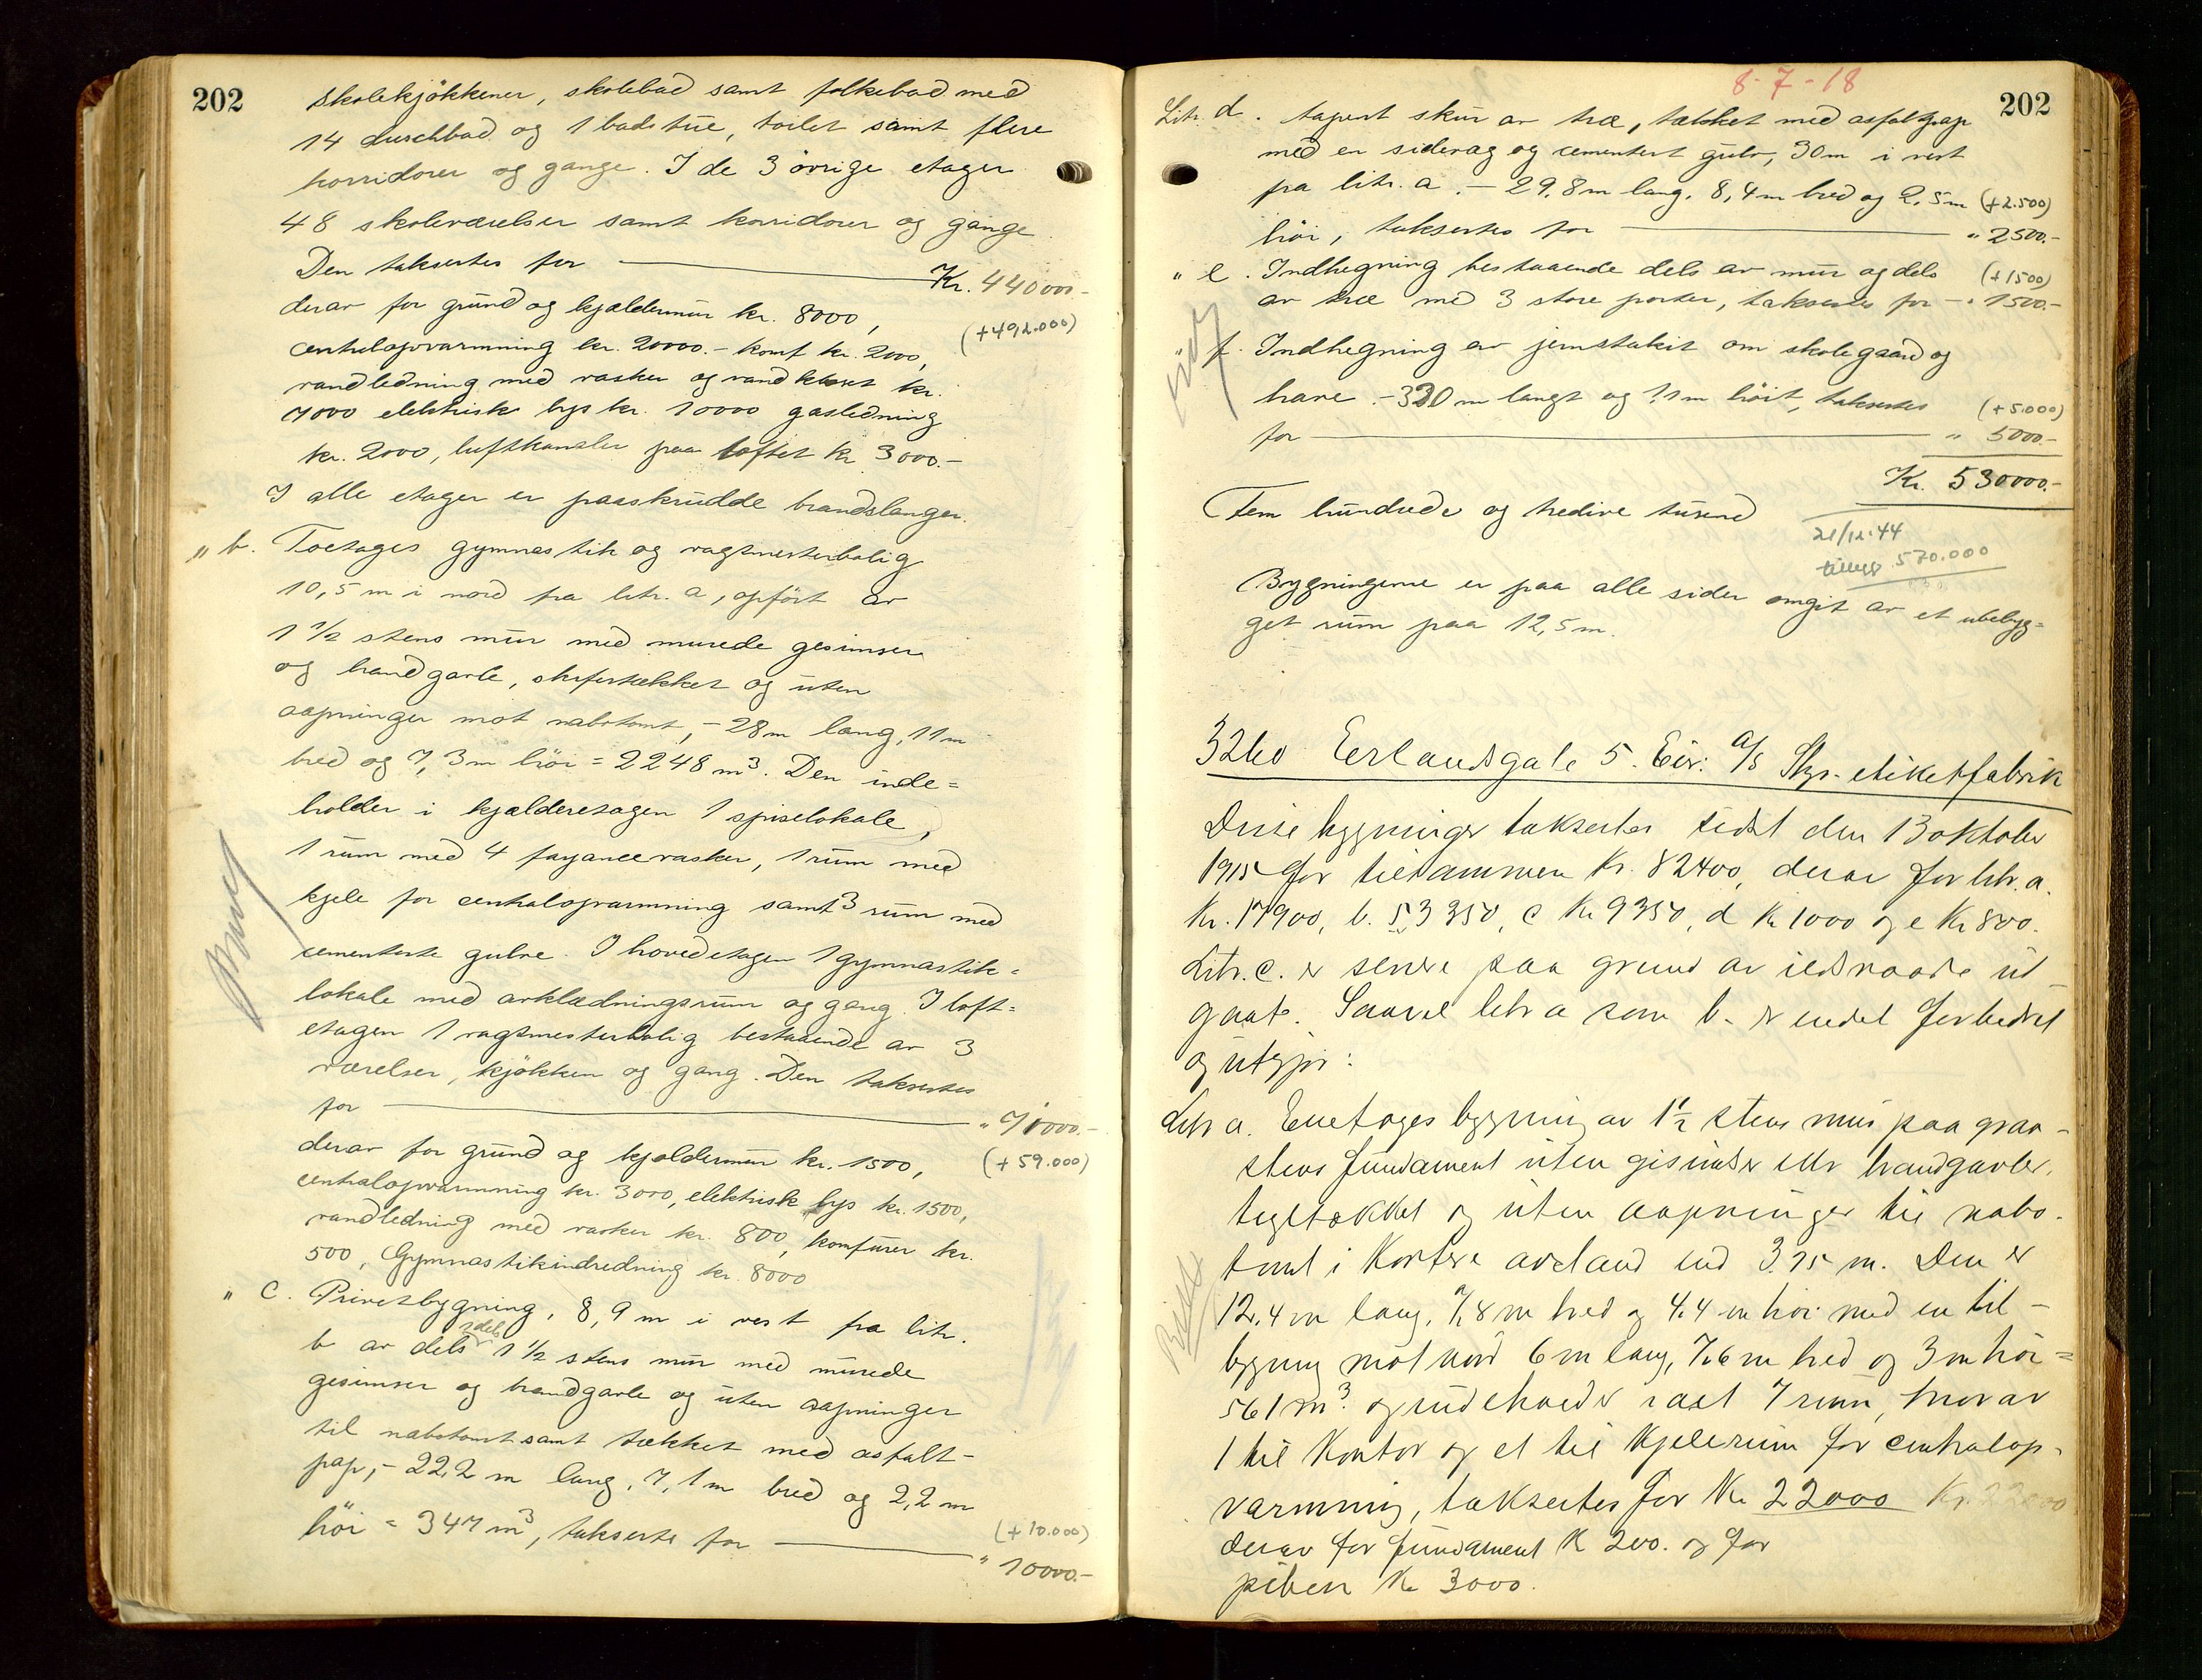 202
skolekjökkener, skolebad samt folkebad med
14 duschbad og 1 badstue, toilet samt flere
korridorer og gange. I de 3 övrige etager
48 skoleværelser samt korridorer og gange.
Den taksertes for Kr. 440000.-
derav for grund og kjældermur kr. 8000,
(+492.000)
centralopvarmning kr. 20000.- komf kr. 2000,
vandledning med vasker og vandkloset kr.
7000 elektrisk lys kr. 10000 gasledning
kr. 2000, luftkanaler paa loftet kr 3000.-
I alle etager er paaskrudde brandslanger.
" b. Toetages gymnastik og vagtmesterbolig
10,5 m i nord fra litr. a, opfört av
1 1/2 stens mur med murede gesimser
og brandgavle, skifertækket og uten
aapninger mot nabotomt, - 28 m lang, 11 m
bred og 7,3 m höi = 2248 m³. Den inde=
holder i kjælderetagen 1 spiselokale,
1 rum med 4 fayancevasker, 1 rum med
kjele for centralopvarmning samt 3 rum med
cementerte gulve. I hovedetagen 1 gymnastik=
lokale med avklædningsrum og gang. I loft=
etagen 1 vagtmesterbolig bestaaende av 3
værelser, kjökken og gang. Den taksertes
for " 71000.-
derav for grund og kjældermur kr. 1500, (+59.000)
centralopvarmning kr. 3000, elektrisk lys kr. 1500,
vandledning med vasker kr. 800, komfurer kr.
500, Gymnastikindredning kr. 8000
" c. Privetbygning, 8,9 m i vest fra litr.
b av dels 1 dels 1 1/2 stens mur med murede
gesimser og brandgavle og uten aapninger
til nabotomt samt tækket med asfalt-
pap, - 22,2 m lang, 7,1 m bred og 2,2 m
höi = 347 m³, takserte for (+10.000)
" 10000.-
8-7-18
202
Litr. d. Aapent skur av træ, tækket med asfaltpap
med en sidevæg og cementert gulv, 30 m i vest
fra litr. a. - 29,8 m lang, 8,4 m bred og 2,5 m (+2.500)
höi, taksertes for " 2500.-
" e. Indhegning bestaaende dels av mur og dels (+1500)
av træ med 3 store porter, taksertes for - " 1500.-
" f. Indhegning av jernstakit om skolegaard og
have. - 320 m langt og 1,1 m höit, taksertes (+5.000)
for " 5000.-
Kr. 530000.-
Fem hundrede og tredive tusend
21/12.44
tillegg 570.000
Bygningerne er paa alle sider omgit av et ubebyg=
get rum paa 12,5 m.
3260 Erlandsgate 5. Eier: A/S Skr. etiketfabrik
Disse bygninger taksertes sidst den 13 oktober
1915 for tilsammen Kr. 82400, derav for litr. a.
Kr. 17900, b. 53350, c Kr 9350, d Kr 1000 og e Kr 800.
Litr. c. er senere paa grund av ildsvaade ut
gaat. Saavel litr a som b. er endel forbedret
og utgjør:
Litr a. Enetages bygning av 1 1/2 stens mur paa graa-
stens fundament uten gesimser eller brandgavler,
tegltækket og uten aapninger til nabo-
tomt i kortere avstand end 3.75 m. Den er
12,4 m lang, 7,8 m bred og 4,4 m høi med en til-
bygning mot nord 6 m lang, 7,6 m bred og 3 m høi =
561 m³. og indeholder i alt 7 rum, hvorav
1 til Kontor og et til Kjelerum for centralop-
varmning, taksertes for Kr 22000 Kr. 22000
derav for fundament Kr 200. og for
piben Kr 3000.